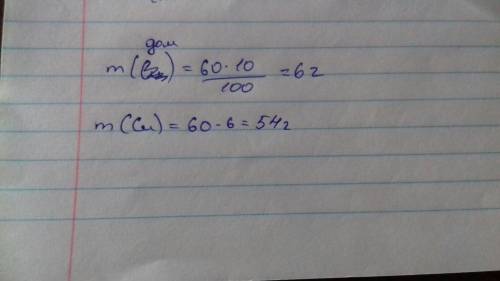 дом
m( ) = 60·10 / 100 = 6г
m(Cu) = 60-6 = 54г